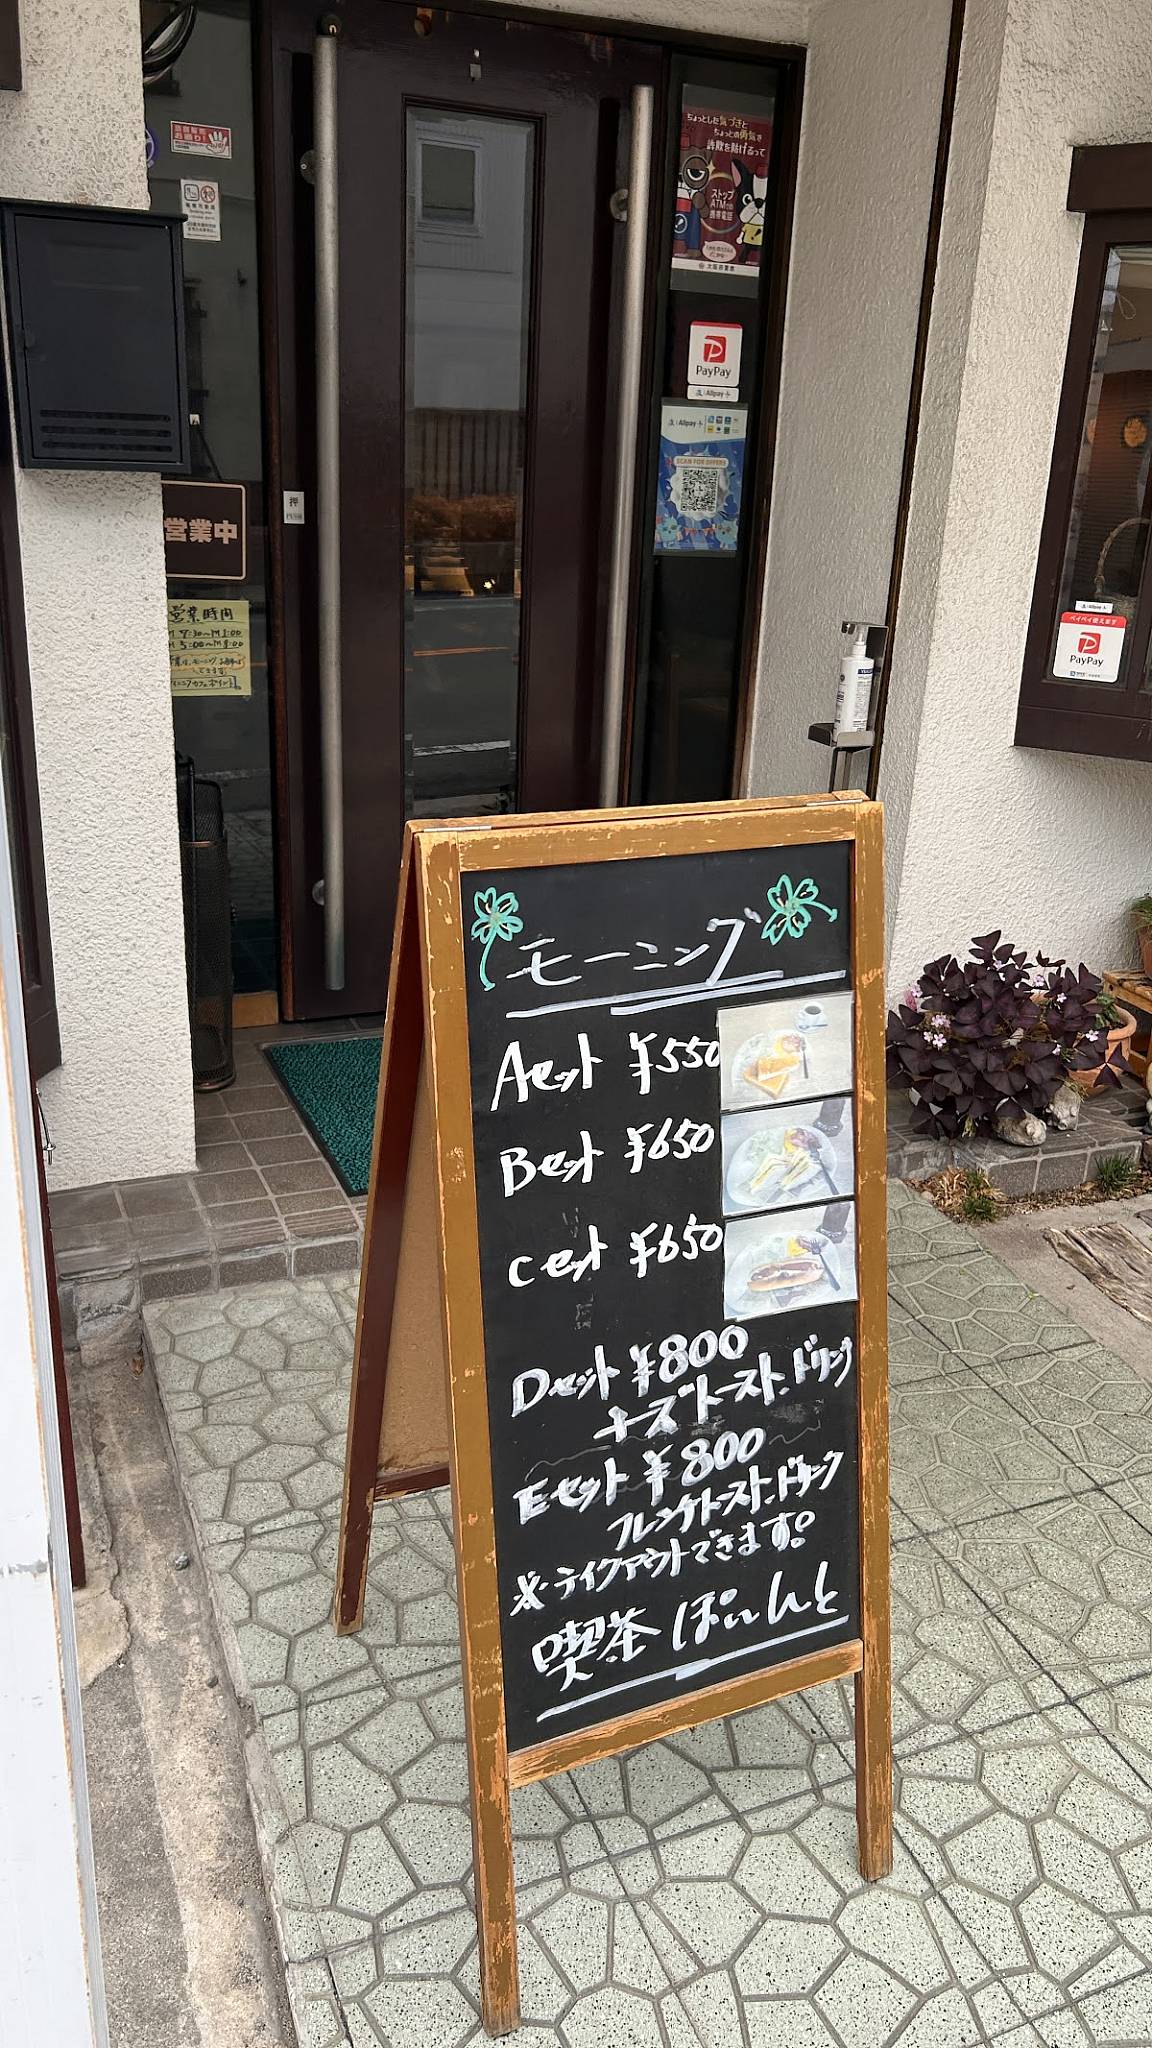 ちょっとした気づきと
ちょっとの勇気で
詐欺を防げるって
ストップ
ATMでの
携帯電話
大阪府警察
PayPay
Alipay+
Alipay+
SCAN FOR OFFERS
押
PUSH
営業中
営業時間
7:30~PM 1:00
5:00~PM 9:00
Alipay+
ペイペイ使えます
PayPay
モーニング
Aセット ¥550
Bセット ¥650
Cセット ¥650
Dセット ¥800
チーズトースト、ドリンク
Eセット ¥800
フレンチトースト、ドリンク
※テイクアウトできます。
喫茶 ぽいんと